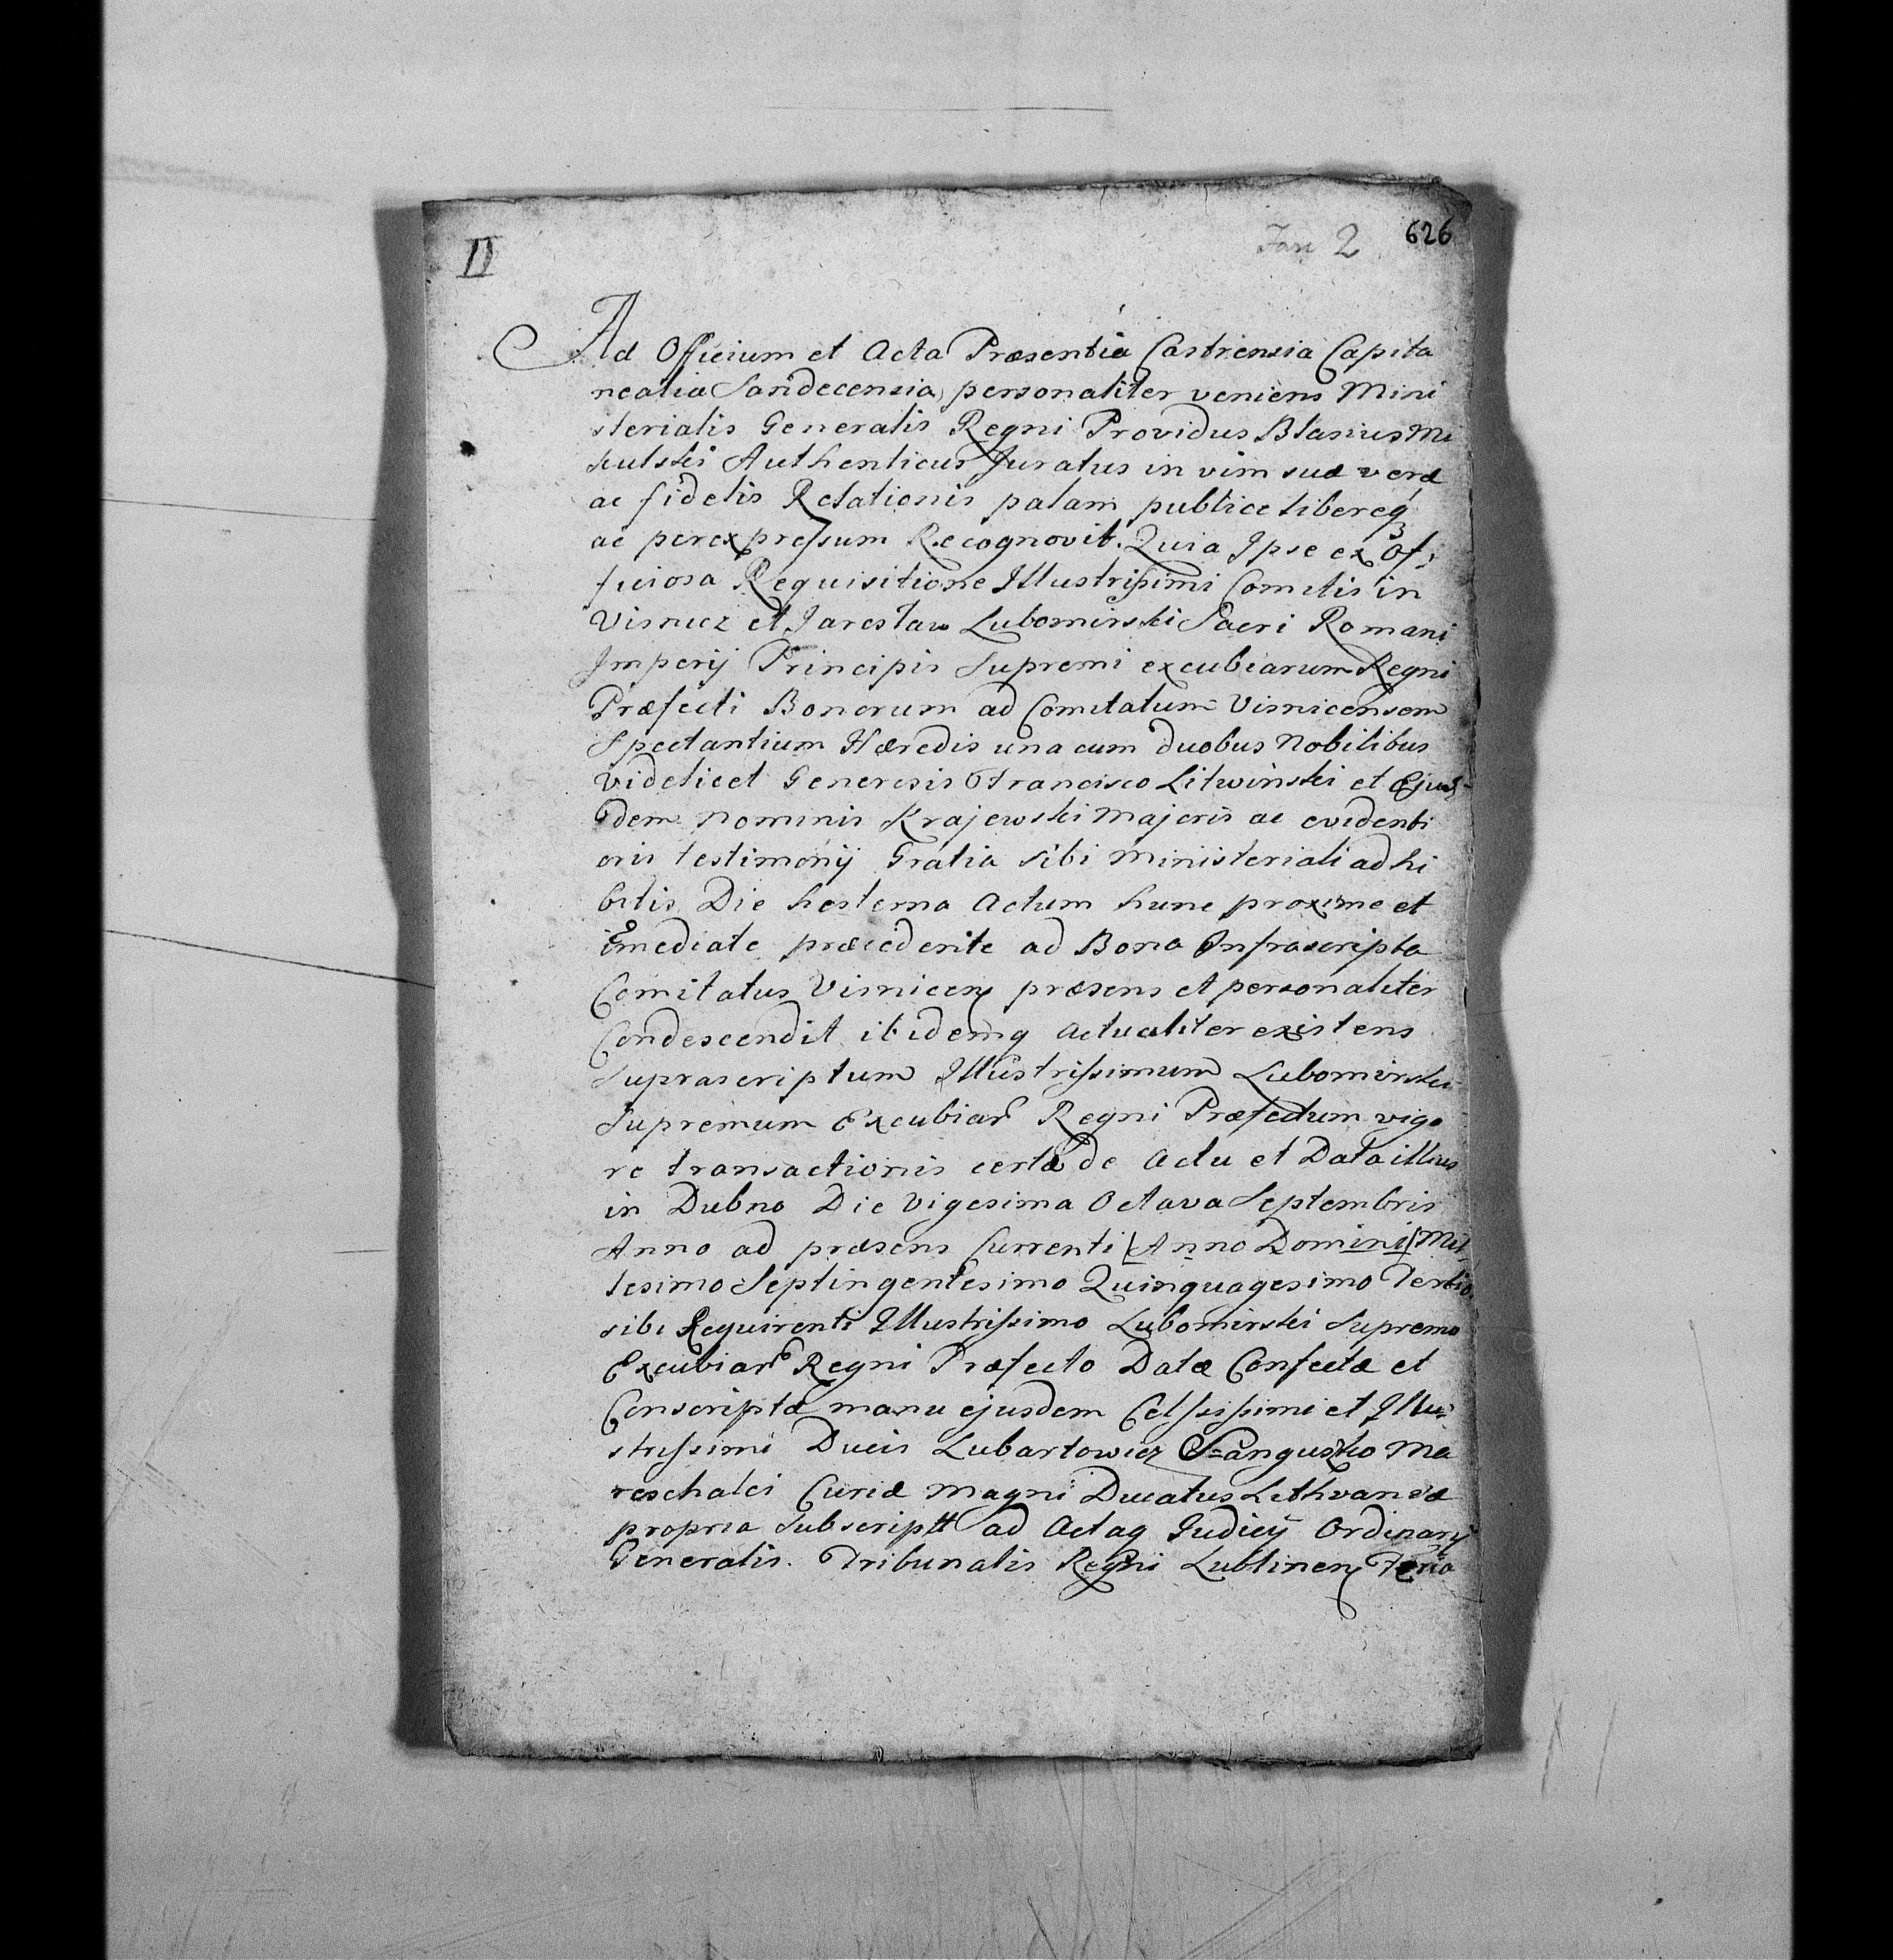 II
Jan 2 626
Ad Officium et Acta Præsentia Castrensia Capita
nealia Sandecensia personaliter veniens Mini
sterialis Generalis Regni Providus Blasius Mi
kulski Authenticus Juratus in vim suæ veræ
ac fidelis Relationis palam publice libereq
ac per expressum Recognovit. Quia Ipse ex Of:
ficiosa Requisitione Illustrissimi Comitis in
Visnicz et Jaroslaw Lubomirski Sacri Romani
Imperij Principis Supremi excubiarum Regni
Præfecti Bonorum ad Comitatum Visnicensem
Spectantium Hæredis una cum duobus Nobilibus
Videlicet Generosis Francisco Litwinski et Ejus-
dem Nominis Krajewski Majoris ac evidenti
oris testimonij Gratia sibi Ministeriali adhi
bitis Die hesterna Actum hunc proxime et
imediate præcedente ad Bona Infrascripta
Comitatus Visnicen præsens et personaliter
Condescendit ibidemq actualiter existens
Suprascriptum Illustrissimum Lubomirski
Supremum Excubiar Regni Præfectum vigo
re transactionis certæ de Actu et Data illius
in Dubno Die Vigesima Octava Septembris
Anno ad præsens Currenti [Anno Domini] Mil-
lesimo Septingentesimo Quinquagesimo Tertio
sibi Requirenti Illustrissimo Lubomirski Supremo
Excubiar Regni Præfecto Datæ Confectæ et
Conscriptæ manu ejusdem Celsissimi et Illu-
strissimi Ducis Lubartowicz Sanguszko Ma
reschalci Curiæ Magni Ducatus Lithvaniæ
propria Subscriptt ad Actaq Judicij Ordinarij
Generalis. Tribunalis Regni Lublinen Feria